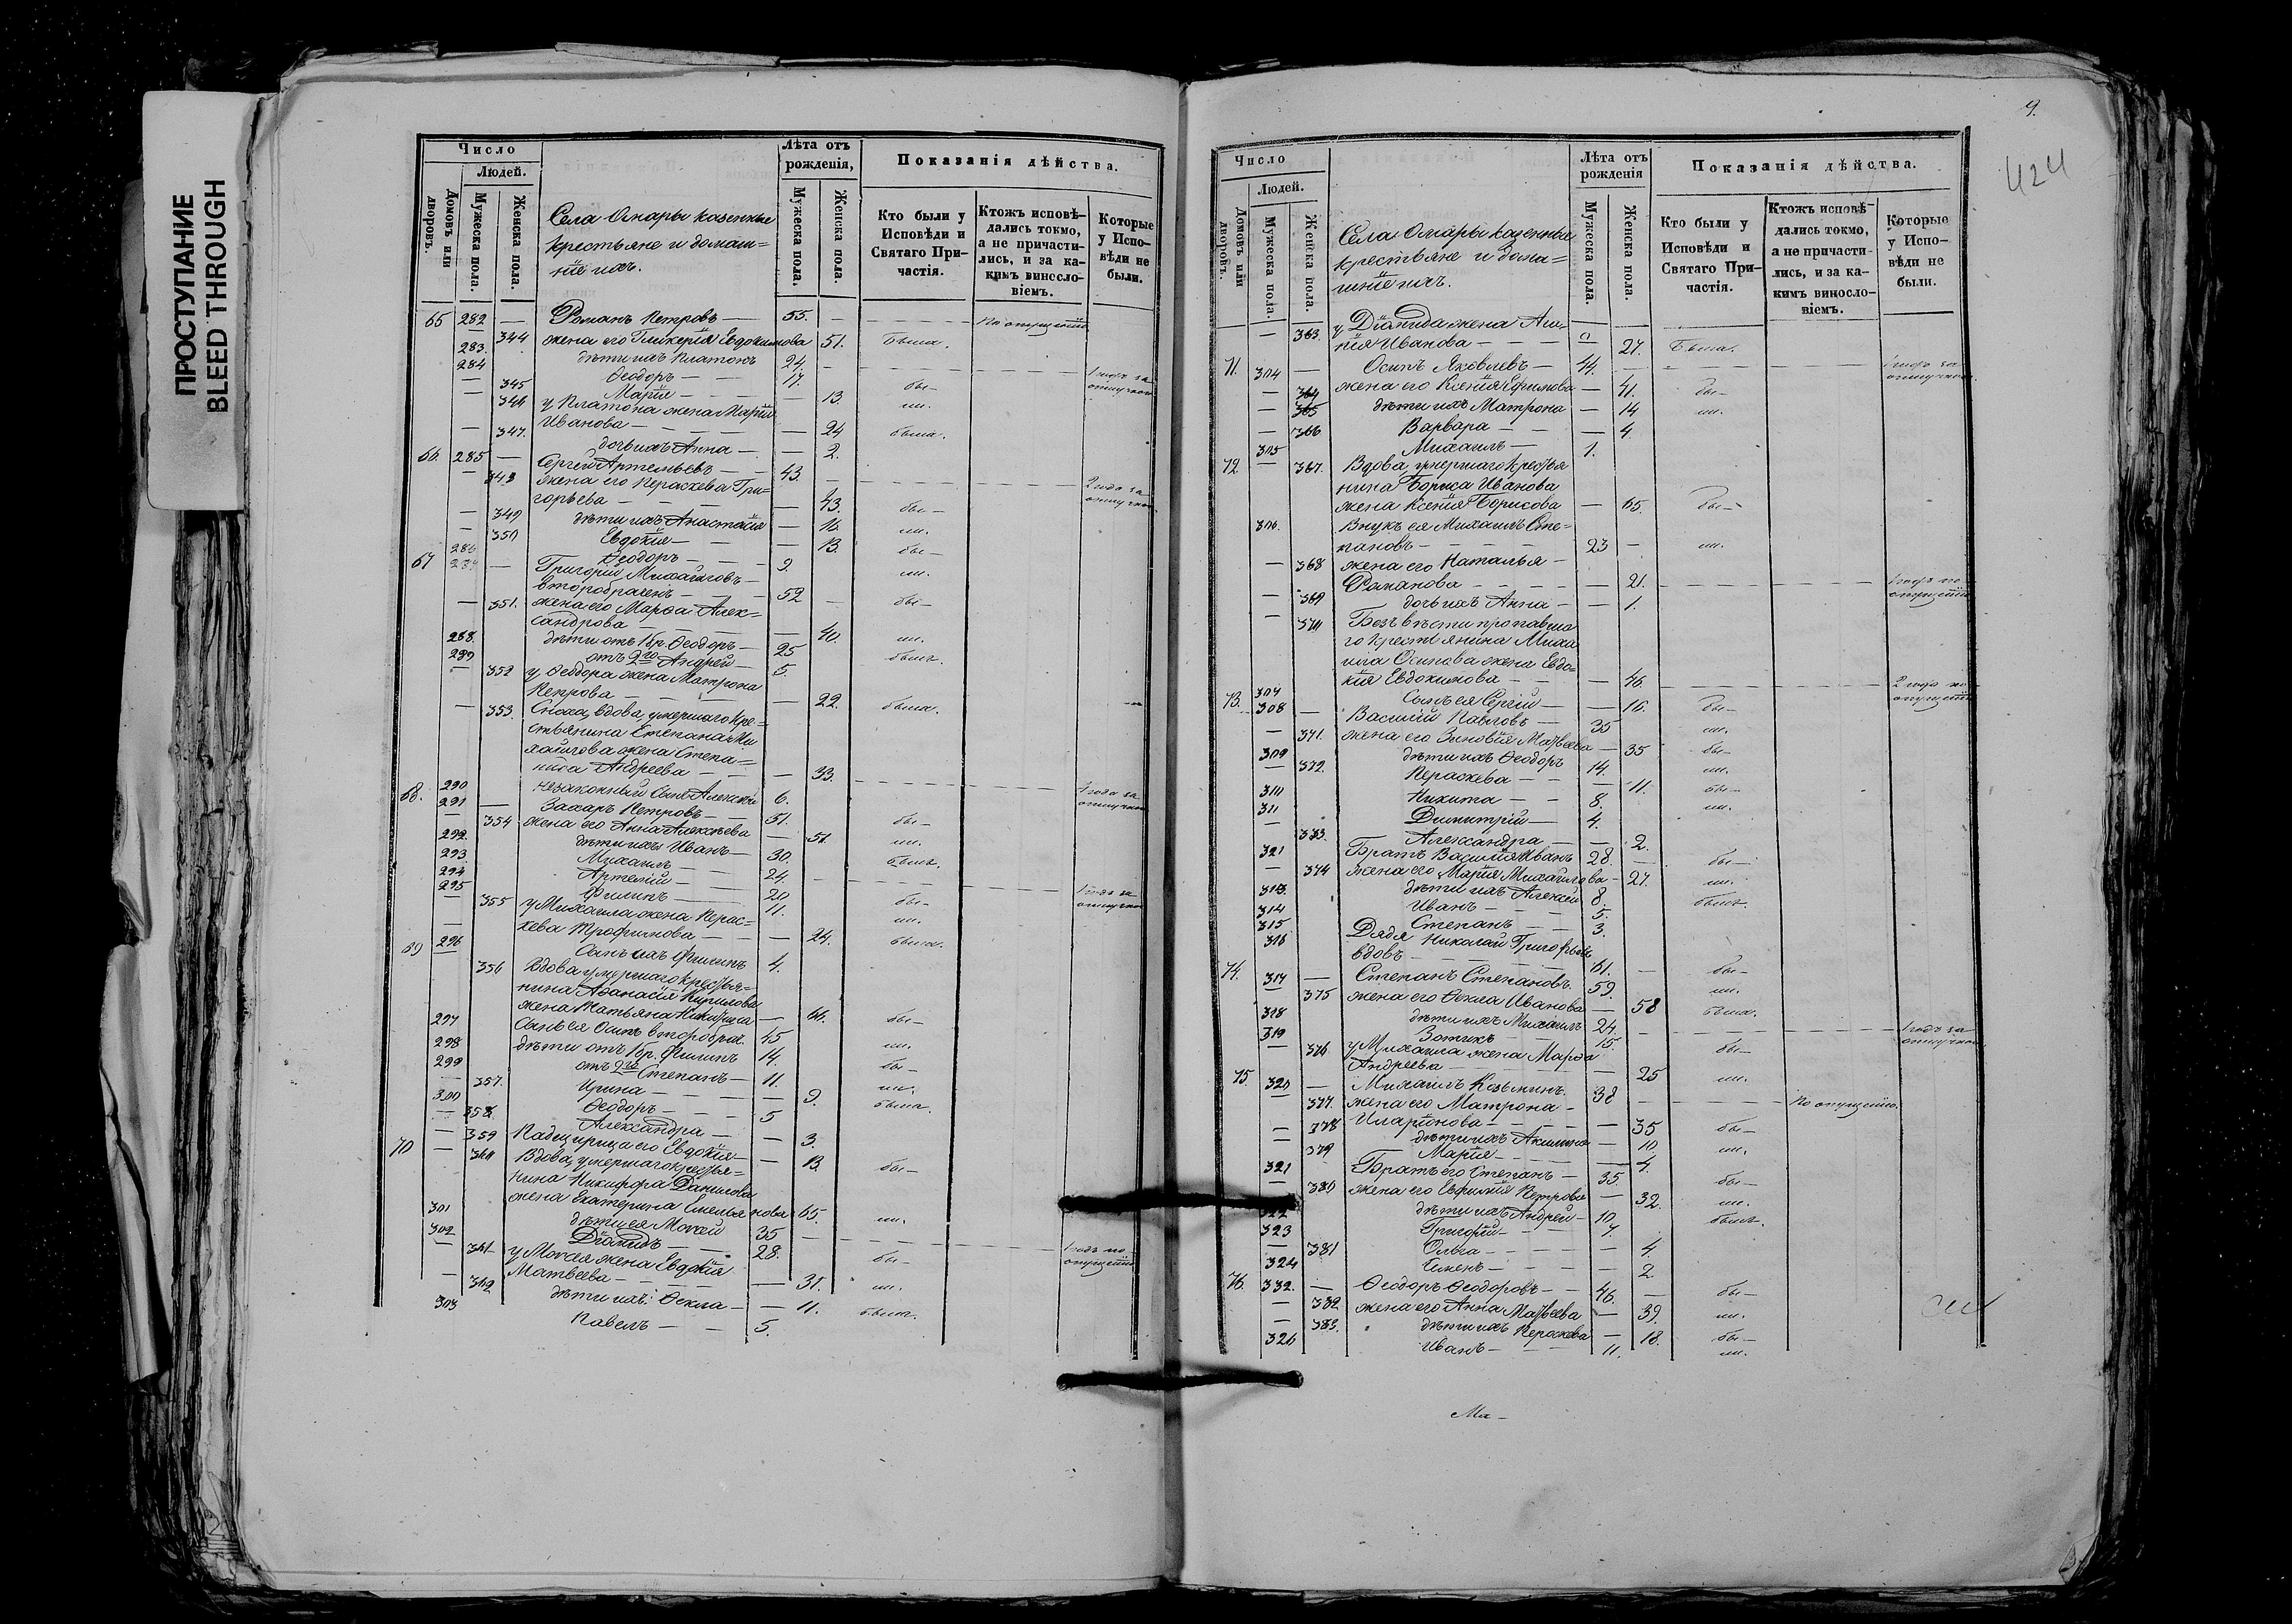 ПРОСТУПАНИЕ
BLEED THROUGH
Число
Людей.
Домовъ или дворовъ.
Мужеска пола.
Женска пола.
Села Омары казенные
крестьяне и домаш=
ніе ихъ.
Лѣта отъ
рожденія,
Мужеска пола.
Женска пола.
Показанія дѣйства.
Кто были у
Исповѣди и
Святаго При-
частія.
Ктожъ исповѣ-
дались токмо,
а не причасти-
лись, и за ка-
кимъ виносло-
віемъ.
Которые
у Испо-
вѣди не
были.
65 282 — Романъ Петровъ — 55. — По опущенію
344 жена его Гликерія Евдокимова 51. была.
283. дѣти ихъ Платонъ 24. 1 годъ за отлучкою
284 Ѳеодоръ — 17. бы-
345 Марія — 13. ли.
346 у Платона жена Марія
Иванова — 24 была.
347. дочь ихъ Анна — 2.
66. 285 — Сергей Артемьевъ — 43. 2 года за отлучкою
348 жена его Параскева Гри=
горьева — 43. бы-
349 дѣти ихъ Анастасія — 16 ли.
350 Евдокія — 13. бы-
286 Ѳеодоръ — 9. ли.
67 287 — Григорій Михайловъ —
второбраченъ — 52 бы-
351. жена его Марѳа Алек=
сандрова — 40. ли.
288. дѣти отъ 1 бр. Ѳеодоръ — 25 былъ.
289 отъ 2го Андрей — 5.
352 у Ѳеодора жена Матрона
Петрова — 22. была.
353. Сноха, вдова, умершаго кре=
стьянина Степана Ми
хайлова жена Степа=
нида Андреева — 33. года за отлучкою
290 незаконный сынъ Алексѣй 6.
68. 291 — Захаръ Петровъ — 51. бы-
354 жена его Анна Алексѣева — 51. ли.
292. дѣти ихъ Иванъ — 30. былъ.
293. Михаилъ — 24. 1 годъ за отлучкою
294 Артемій — 20 бы-
295 Филипъ — 11. ли.
355 у Михаила жена Парас=
кева Трофимова — 24. была.
296 Сынъ ихъ Филипъ 4.
69 356 Вдова умершаго крестья=
нина Аѳанасія Кирилова
жена Татьяна Никитина — 66. бы-
297 Сынъ ея Осипъ второбрач. 45 ли.
298 дѣти отъ 1 бр. Филипъ 14. бы-
299 отъ 2го Степанъ — 11. ли.
357. Ирина — 9. была.
300 Ѳеодоръ — 5
358. Александра — 3.
359 Падчерица его Евдокія — 13. бы-
70 — 360 Вдова, умершаго крестья=
нина Никифора Данилова
жена Екатерина Емельянова 65. ли.
301 дѣти ея Моисей 35 1 годъ по опущенію
302 Діомидъ — 28. бы-
361 у Моисея жена Евдокія
Матвеева — 31. ли.
362 дѣти ихъ: Ѳекла — 11. была.
303 Павелъ — 5.
9.
424
Число
Людей.
Домовъ или дворовъ.
Мужеска пола.
Женска пола.
Села Омары казенные
крестьяне и дома=
шніе ихъ.
Лѣта отъ
рожденія
Мужеска пола.
Женска пола.
Показанія дѣйства.
Кто были у
Исповѣди и
Святаго При-
частія.
Ктожъ исповѣ-
дались токмо,
а не причасти-
лись, и за ка-
кимъ виносло-
віемъ.
Которые
у Испо-
вѣди не
были.
363. у Діамида жена Аги-
нія Иванова — 27. была.
71. 304 — Осипъ Яковлевъ — 44. 1 годъ за отлучкою.
364 жена его Ксенія Ефимова — 41. бы-
365 дѣти ихъ Матрона — 14 ли.
366 Варвара — 4.
305 Михаилъ — 1.
72 — 367. Вдова, умершаго крестья
нина Бориса Иванова
жена Ксенія Борисова — 65. бы-
306. Внукъ ея Михаилъ Сте=
пановъ — 23 — ли.
368 жена его Наталья —
Романова — 21. 1 годъ по опущенію
369 дочь ихъ Анна — 1.
370 Безъ вѣсти пропавша
го крестьянина Миха
ила Осипова жена Евдо=
кія Евдокимова — 46. 2 года по опущенію
307 Сынъ ея Сергій — 16. бы-
73. 308 — Василій Павловъ — 35 ли.
371. жена его Зиновія Матвеева — 35 бы-
309 дѣти ихъ Ѳеодоръ 14. ли.
372. Параскева — 11. бы-
310 Никита — 8. ли.
311 Димитрій — 4.
373. Александра — 2.
321 Братъ Василія Иванъ 28. — бы-
374 жена его Марія Михайлова — 27. ли.
313. дѣти ихъ Алексей 8. былъ.
314 Иванъ — 5.
315 Степанъ — 3.
316 Дядя Николай Григорьевъ
вдовъ — 61. — бы-
74. 317 — Степанъ Степановъ. 59. ли.
375 жена его Ѳекла Иванова — 58 была.
318 дѣти ихъ Михаилъ 24. 1 годъ за отлучкою
319 Зотикъ — 15. бы-
376 у Михаила жена Марѳа
Андреева — 25 ли.
75. 320 — Михаилъ Козьминъ. 38 По опущенію.
377. жена его Матрона —
Иларіонова — 35 бы-
378 дѣти ихъ Акилина — 10. ли.
379 Марія — 4.
321 Братъ его Степанъ — 35. бы-
380 жена его Евфимія Петрова — 32. ли.
322 дѣти ихъ Андрей — 10 былъ.
323 Григорій — 7.
381 Ольга — 4.
324 Семенъ — 2
76. 332. — Ѳеодоръ Ѳеодоровъ — 46. — бы-
382 жена его Анна Матвеева — 39. ли.
383. дѣти ихъ Параскева — 18. бы-
326 Иванъ — 11. ли.
Ма-